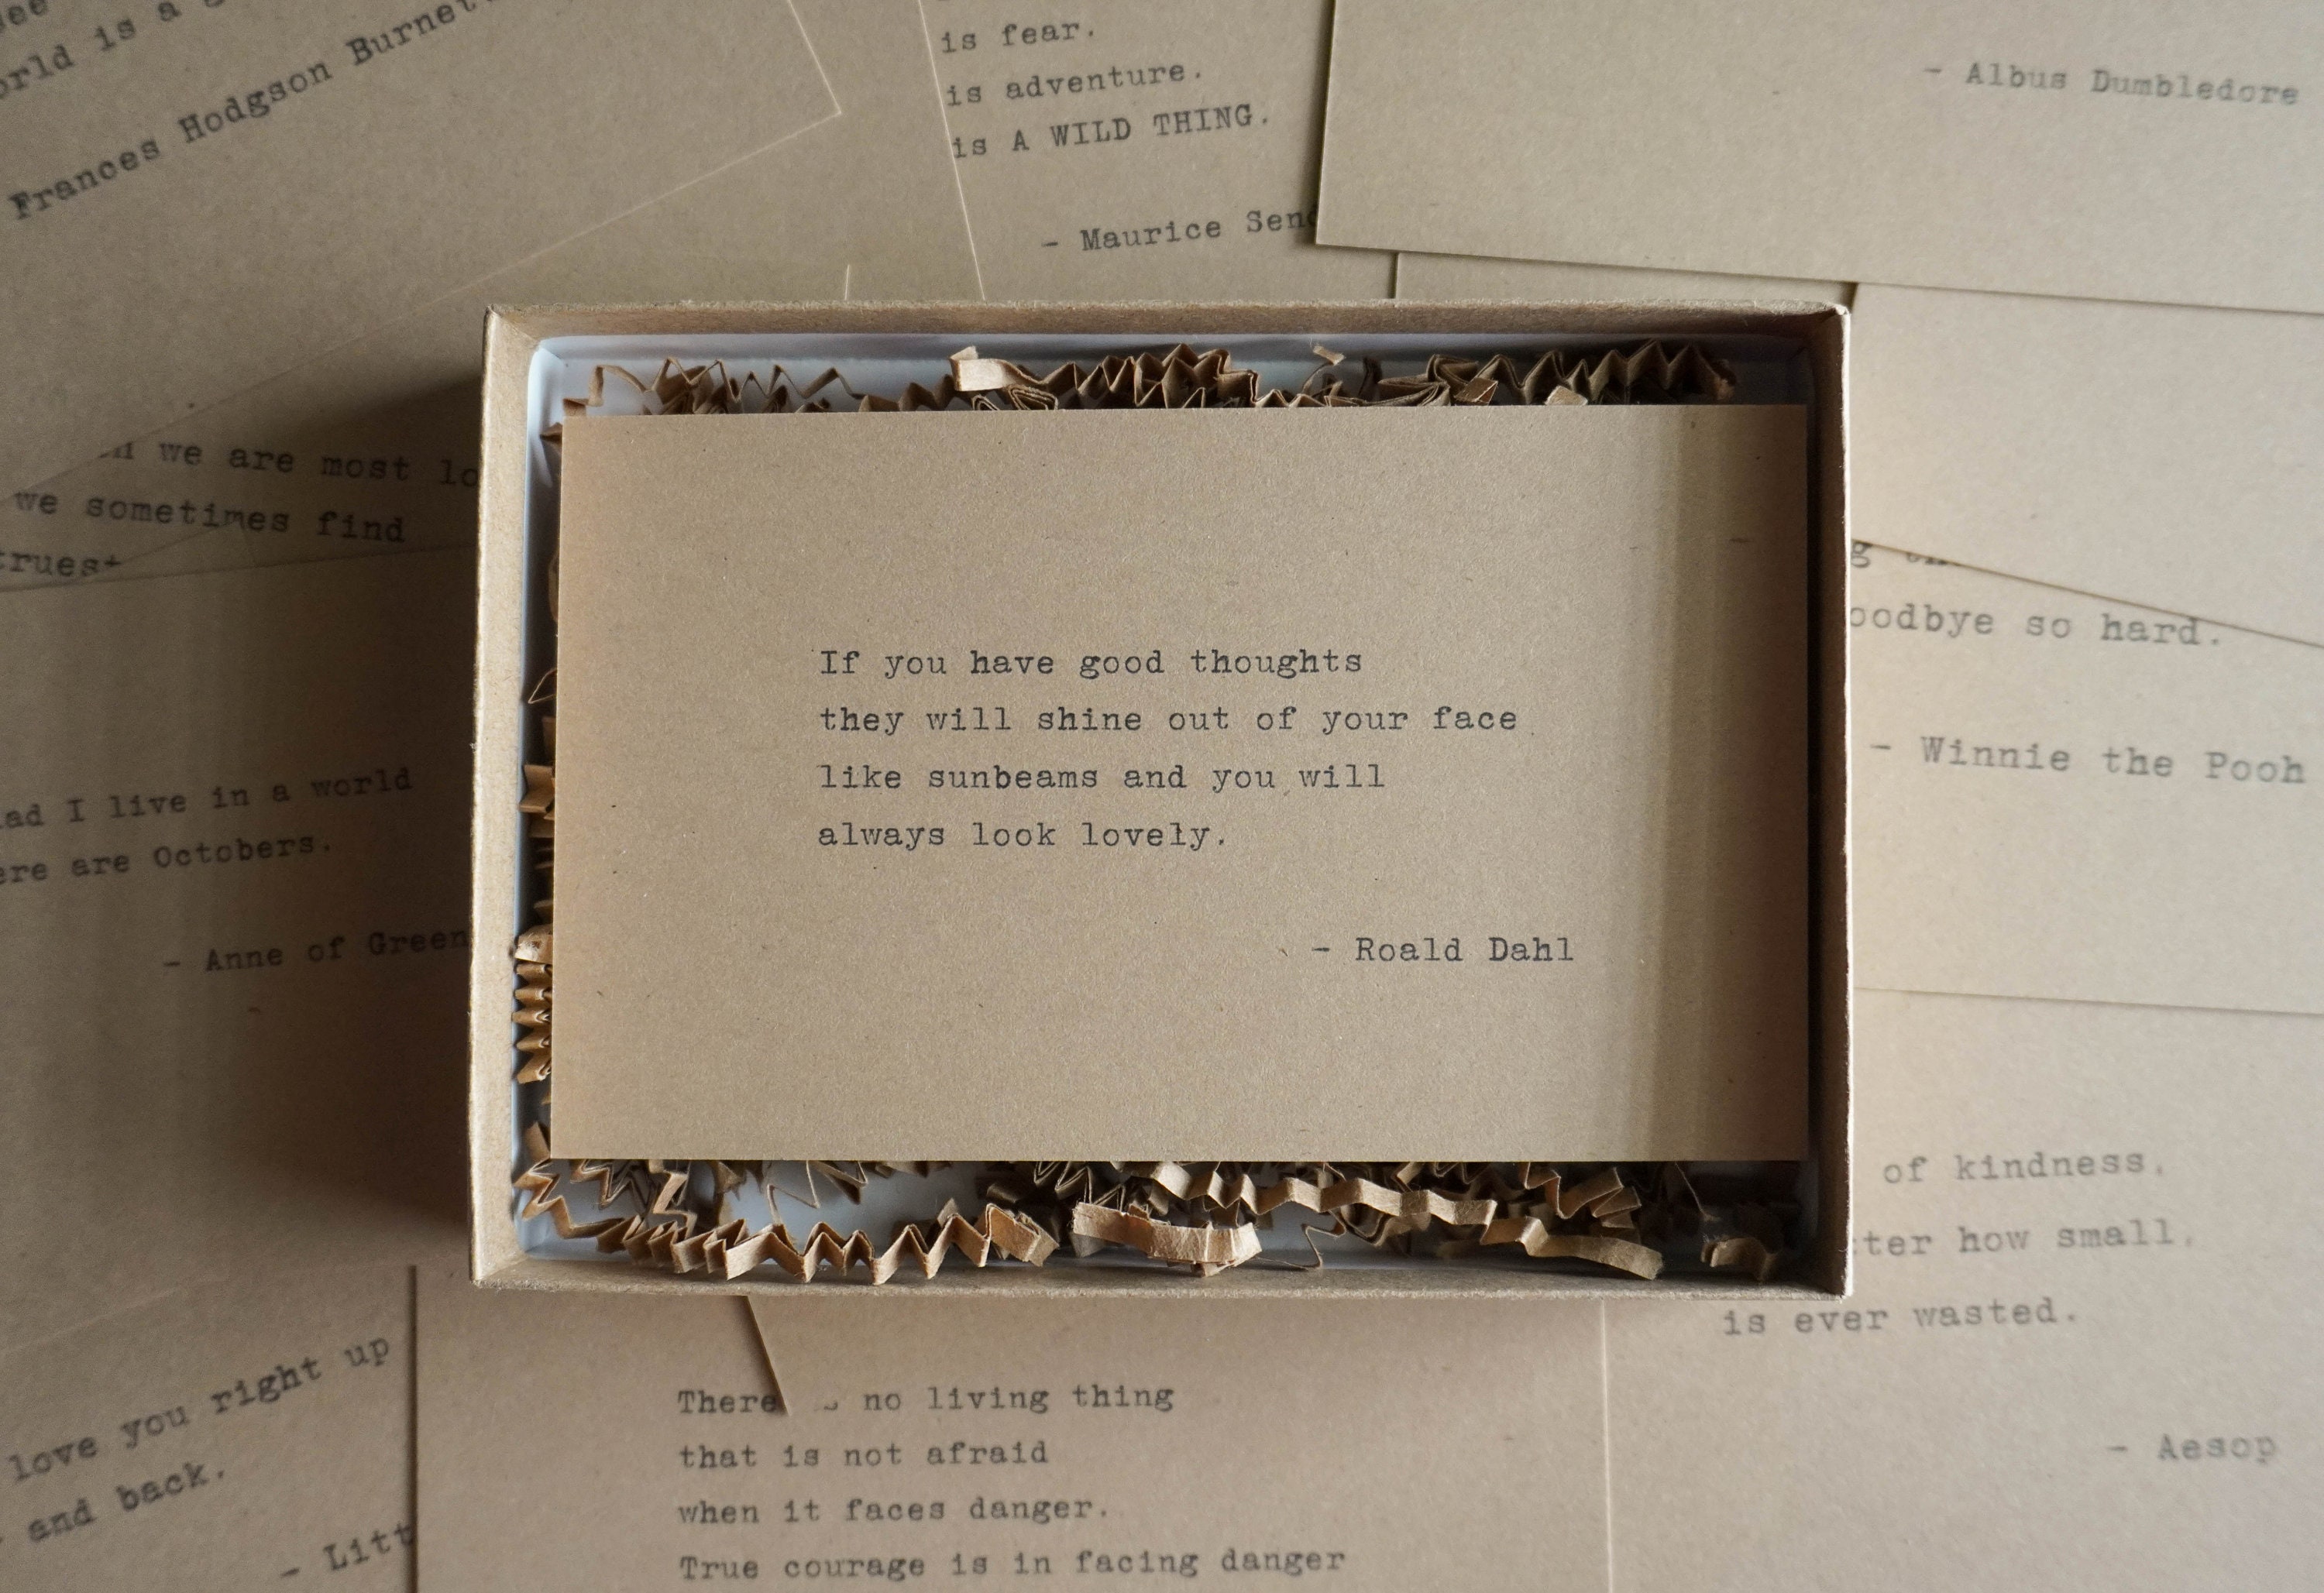 is a
Frances Hodgson
is fear.
is adventure.
is A WILD THING.
- Maurice
- Albus Dumbledore
we are most
we sometimes find
If you have good thoughts
they will shine out of your face
like sunbeams and you will
always look lovely.
- Roald Dahl
so hard.
- Winnie the Pooh
I live in a world
are Octobers.
- Anne of Green
of kindness,
how small,
is ever wasted.
- Aesop
love you right up
and back.
There no living thing
that is not afraid
when it faces danger.
True courage is in facing danger